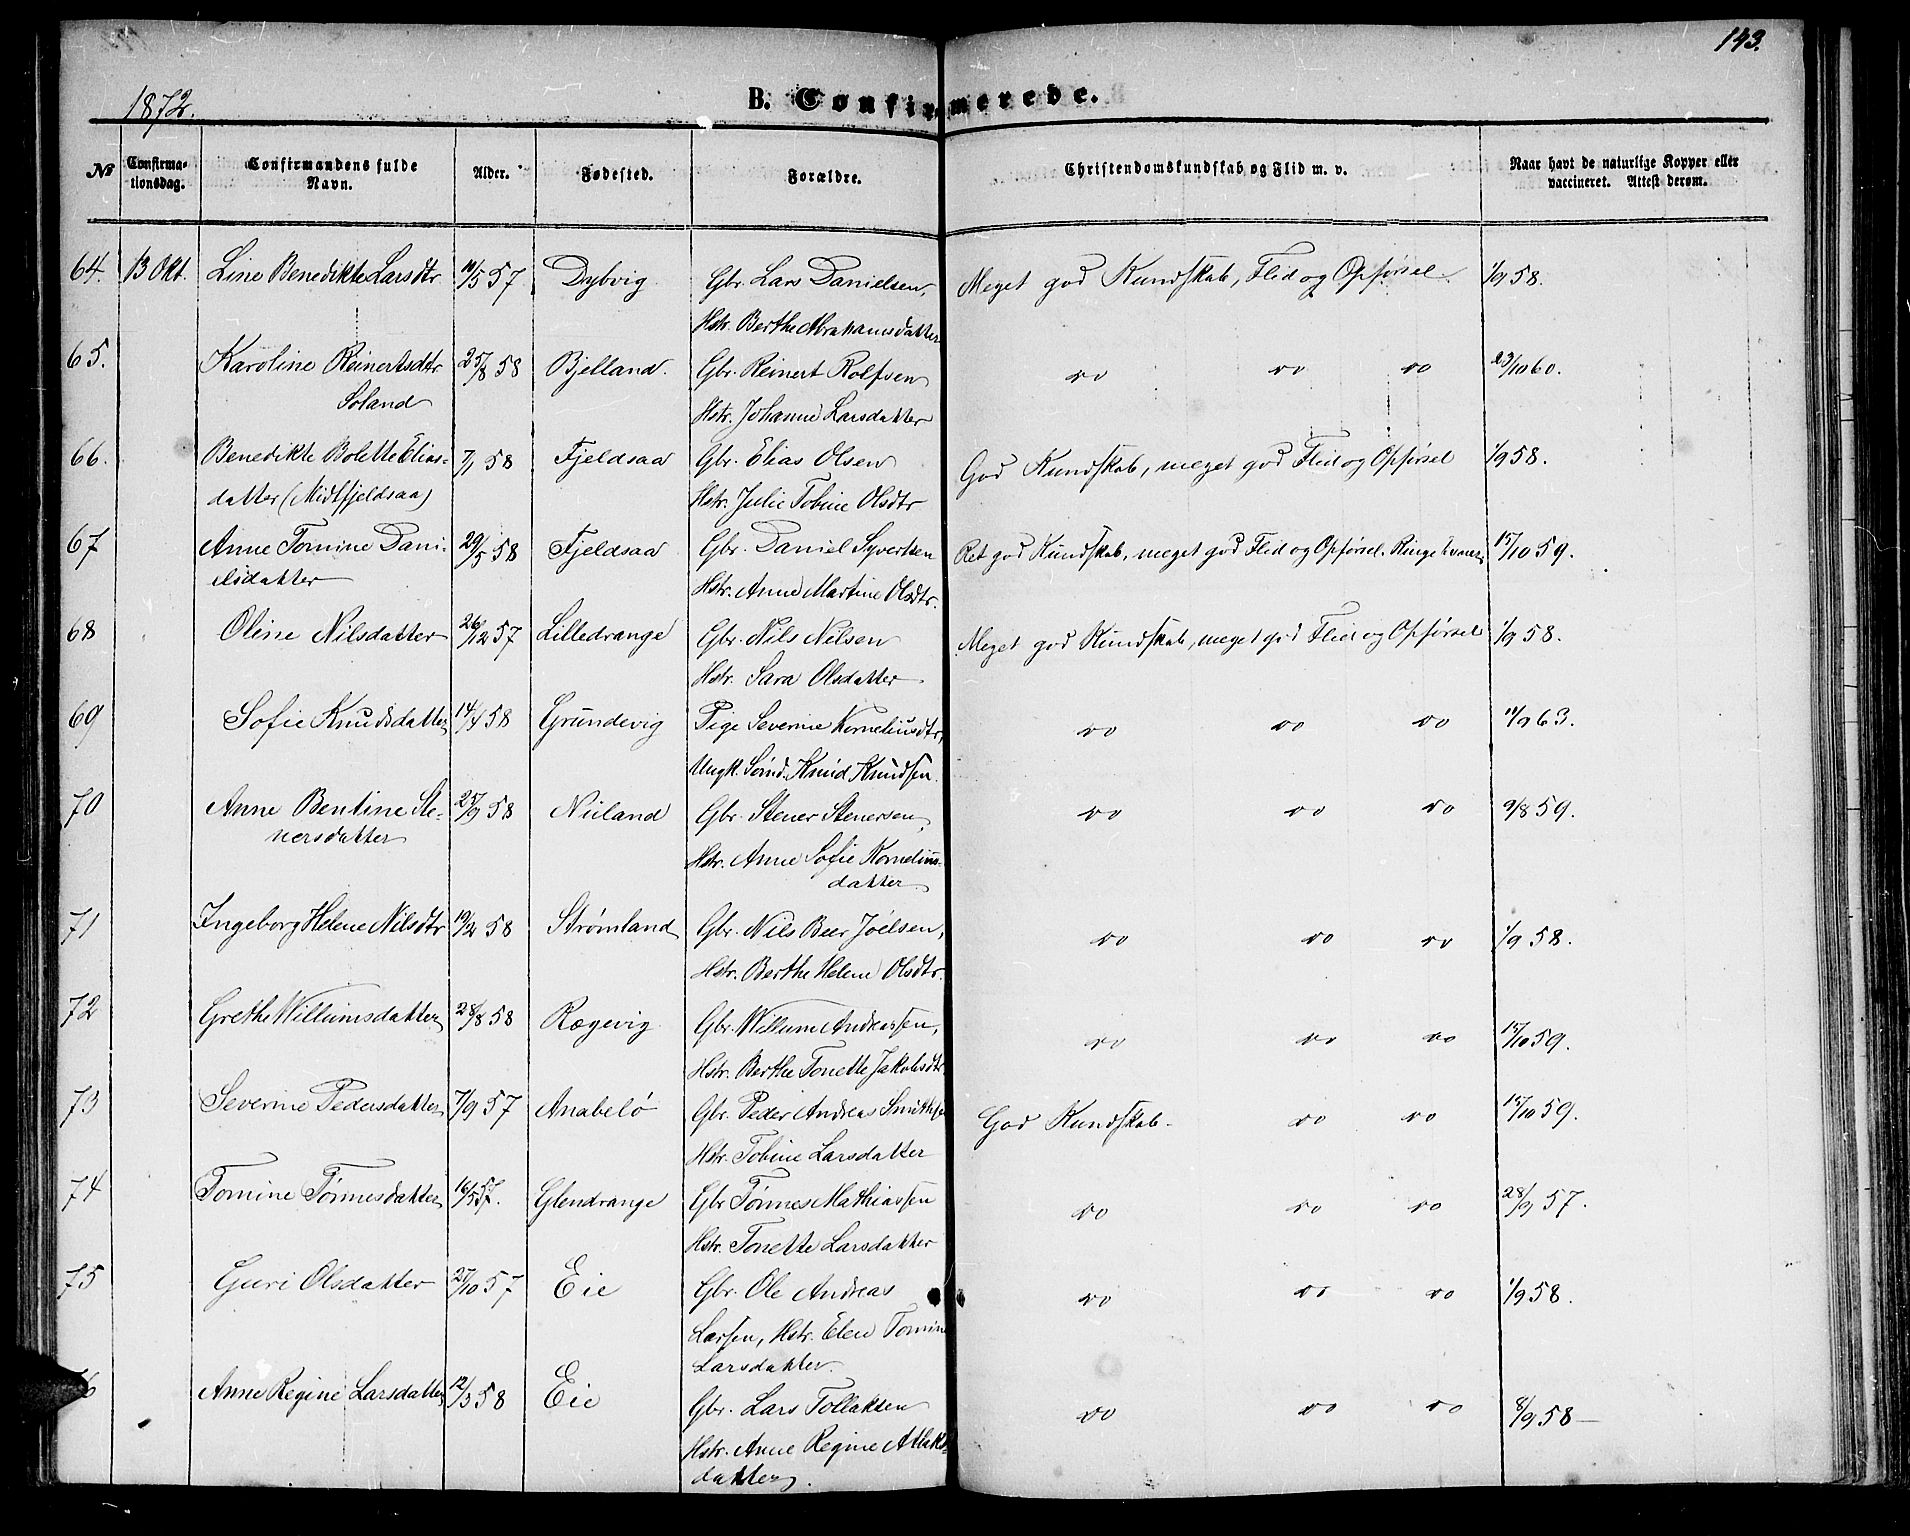 143.
1872.
B. Confirmerede.
№ Confirma-tionsdag. Confirmandens fulde Navn. Alder. Fødested. Forældre. Christendomskundskab og Flid m. v. Naar havt de naturlige Kopper eller vaccineret. Attest derom.
64. 13 Okt. Line Benedikte Larsdtr 19/5 57 Dybvig Gbr. Lars Danielsen, Meget god Kundskab, Flid og Opførsel. 1/9 58.
Hstr. Berthe Abrahamsdatter
65. Karoline Reinertsdtr 25/8 58 Bjelland. Gbr. Reinert Rolfsen do do do 23/10 60.
Soland Hstr. Johanne Larsdatter
66. Benedikte Bolette Elias- 7/1 58 Fjeldsaa Gbr. Elias Olsen God Kundskab, meget god Flid og Opførsel 1/9 58.
datter (Midtfjeldsaa) Hstr. Julie Tobine Olsdtr
67 Anne Tomine Dani- 29/5 58 Fjeldsaa Gbr. Daniel Syvertsen Ret god Kundskab, meget god Flid og Opførsel. 15/10 59.
elsdatter Hstr. Anne Martine Olsdtr.
68 Oline Nilsdatter 26/12 57 Lilledrange Gbr. Nils Nilsen Meget god Kundskab, meget god Flid og Opførsel 1/9 58.
Hstr. Sara Olsdatter
69 Sofie Knudsdatter 14/4 58 Grundevig Pige Severine Korneliusdtr, do do do 11/9 63.
Ungk. Sømd. Knud Knudsen.
70 Anne Bentine Ste- 25/9 58 Nuland Gbr. Stener Stenersen, do do do 9/8 59.
nersdatter Hstr. Anne Sofie Kornelius-
datter
71 Ingeborg Helene Nilsdtr 19/2 58 Strømland Gbr. Nils Beer Joelsen, do do do 1/9 58.
Hstr. Berthe Helene Olsdtr.
72 Grethe Willumsdatter 28/8 58 Rægevig Gbr. Willum Andreassen, do do do 15/10 59.
Hstr. Berthe Tonette Jakobsdtr.
73 Severine Pedersdatter 7/9 57 Anabelø Gbr. Peder Andreas God Kundskab do do 15/10 59.
Hstr. Tobine Larsdatter
74 Tomine Tønnesdatter 16/5 57. Glendrange Gbr Tønnes Mathiassen do do do 28/9 57.
Hstr. Tonette Larsdatter
75 Guri Olsdatter 27/10 57 Eie Gbr. Ole Andreas do do do 1/9 58.
Larsen, Hstr. Elen Tomine
Larsdatter.
6 Anne Regine Larsdatter 12/3 58 Eie Gbr. Lars Tollaksen do do do 8/9 58
Hstr. Anne Regine Atlaks-
datter.